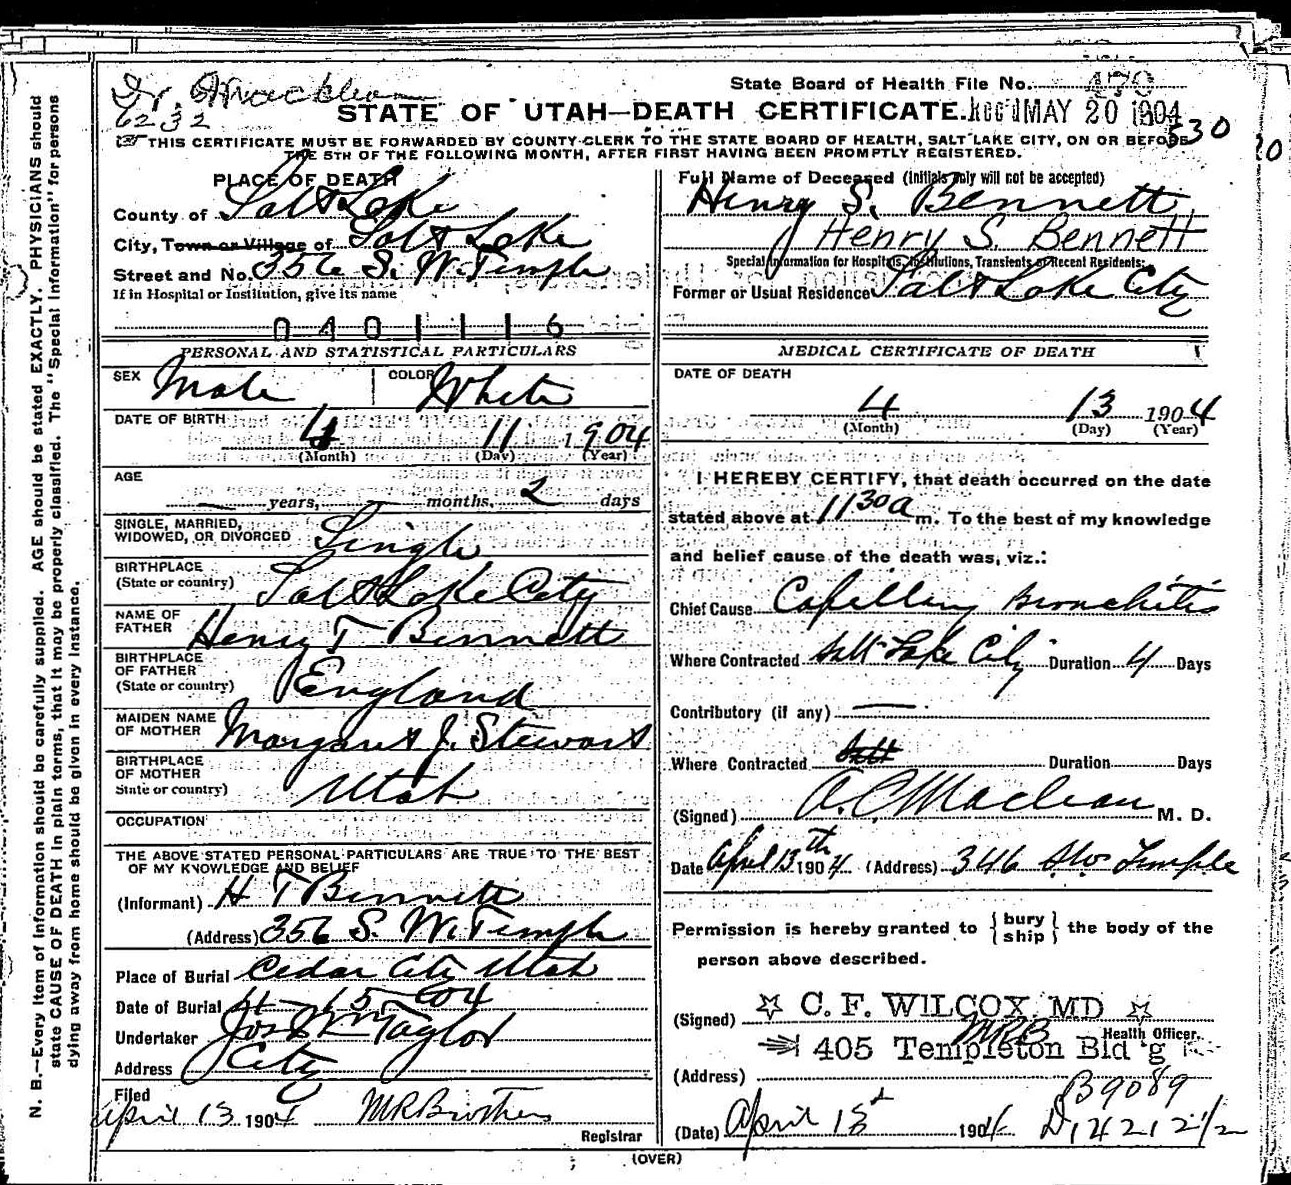 Dr. 
6232
State Board of Health File No. 479
STATE OF UTAH—DEATH CERTIFICATE. Rec'd MAY 20 1904
530
THIS CERTIFICATE MUST BE FORWARDED BY COUNTY CLERK TO THE STATE BOARD OF HEALTH, SALT LAKE CITY, ON OR BEFORE
THE 5TH OF THE FOLLOWING MONTH, AFTER FIRST HAVING BEEN PROMPTLY REGISTERED.
N. B.—Every item of information should be carefully supplied. AGE should be stated EXACTLY. PHYSICIANS should
state CAUSE OF DEATH in plain terms, that it may be properly classified. The "Special Information" for persons
dying away from home should be given in every instance.
PLACE OF DEATH
County of Salt Lake
City, Town or Village of Salt Lake
Street and No. 356 S. W. Temple
If in Hospital or Institution, give its name
0401116
PERSONAL AND STATISTICAL PARTICULARS
SEX Male COLOR White
DATE OF BIRTH 4 11 1904
(Month) (Day) (Year)
AGE
years, months, 2 days
SINGLE, MARRIED,
WIDOWED, OR DIVORCED Single
BIRTHPLACE
(State or country) Salt Lake City
NAME OF
FATHER Henry T Bennett
BIRTHPLACE
OF FATHER
(State or country) England
MAIDEN NAME
OF MOTHER Margaret J. Stewart
BIRTHPLACE
OF MOTHER
State or country) Utah
OCCUPATION
THE ABOVE STATED PERSONAL PARTICULARS ARE TRUE TO THE BEST
OF MY KNOWLEDGE AND BELIEF
(Informant) H T Bennett
(Address) 356 S. W. Temple
Place of Burial Cedar City Utah
Date of Burial 4 - 15 - 04
Undertaker Jos Wm Taylor
Address City
Filed
April 13 1904 M R Brothers
Registrar
Full Name of Deceased (Initials only will not be accepted)
Henry S. Bennett
Henry S. Bennett
Special Information for Hospitals, Institutions, Transients or Recent Residents:
Former or Usual Residence Salt Lake City
MEDICAL CERTIFICATE OF DEATH
DATE OF DEATH
4 13 1904
(Month) (Day) (Year)
I HEREBY CERTIFY, that death occurred on the date
stated above at 11 30 a m. To the best of my knowledge
and belief cause of the death was, viz.:
Chief Cause Capillary Bronchitis
Where Contracted Salt Lake City Duration 4 Days
Contributory (if any) —
Where Contracted Duration Days
(Signed) A. C. Maclean M. D.
Date April 13th 1904 (Address) 346 S. W. Temple
Permission is hereby granted to { bury ship } the body of the
person above described.
(Signed) C. F. WILCOX MD
MRB Health Officer.
405 Templeton Bld'g
(Address)
B9089
(Date) April 13 1904 D14212 1/2
(OVER)